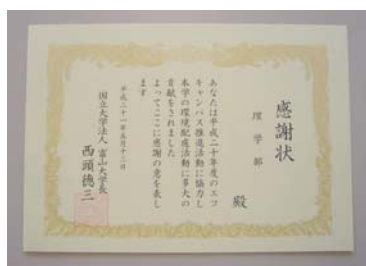 感謝状
理学部 殿
あなたは平成二十年度のエコ
キャンパス推進活動に協力し
本学の環境配慮活動に多大の
貢献をされました
よってここに感謝の意を表し
ます
平成二十一年五月十三日
国立大学法人 富山大学長
西頭德三